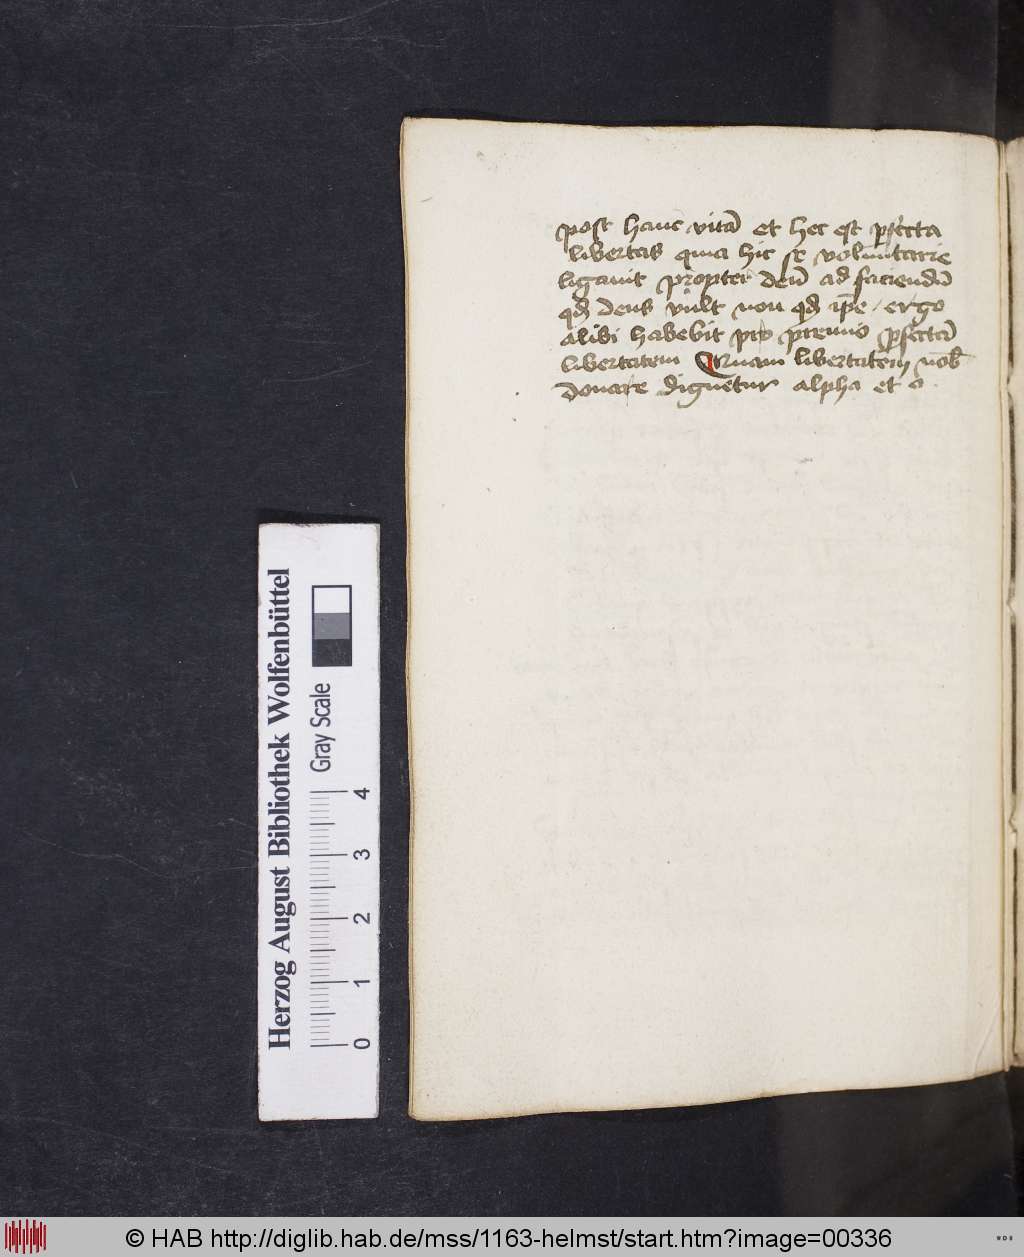 post hanc vitā et hec est ꝑfecta
libertas quia hic se voluntarie
ligauit propter deū ad faciendū
qđ deus vult non qđ ip̄e ergo
alibi habebit pro premio ꝑfectā
libertatem Quam libertatem nob̄
donare dignetur alpha et o .
Herzog August Bibliothek Wolfenbüttel
Gray Scale
0 1 2 3 4
© HAB http://diglib.hab.de/mss/1163-helmst/start.htm?image=00336